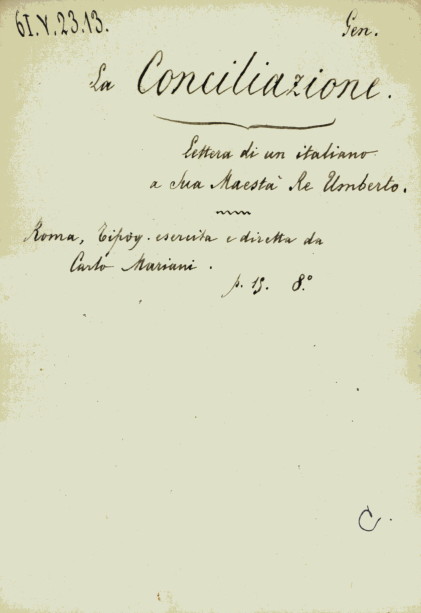 61.V.23.13.
Gen.
La Conciliazione.
Lettera di un italiano
a Sua Maestà Re Umberto.
Roma, Tipog. esercita e diretta da
Carlo Mariani.
p. 15. 8.°
C.